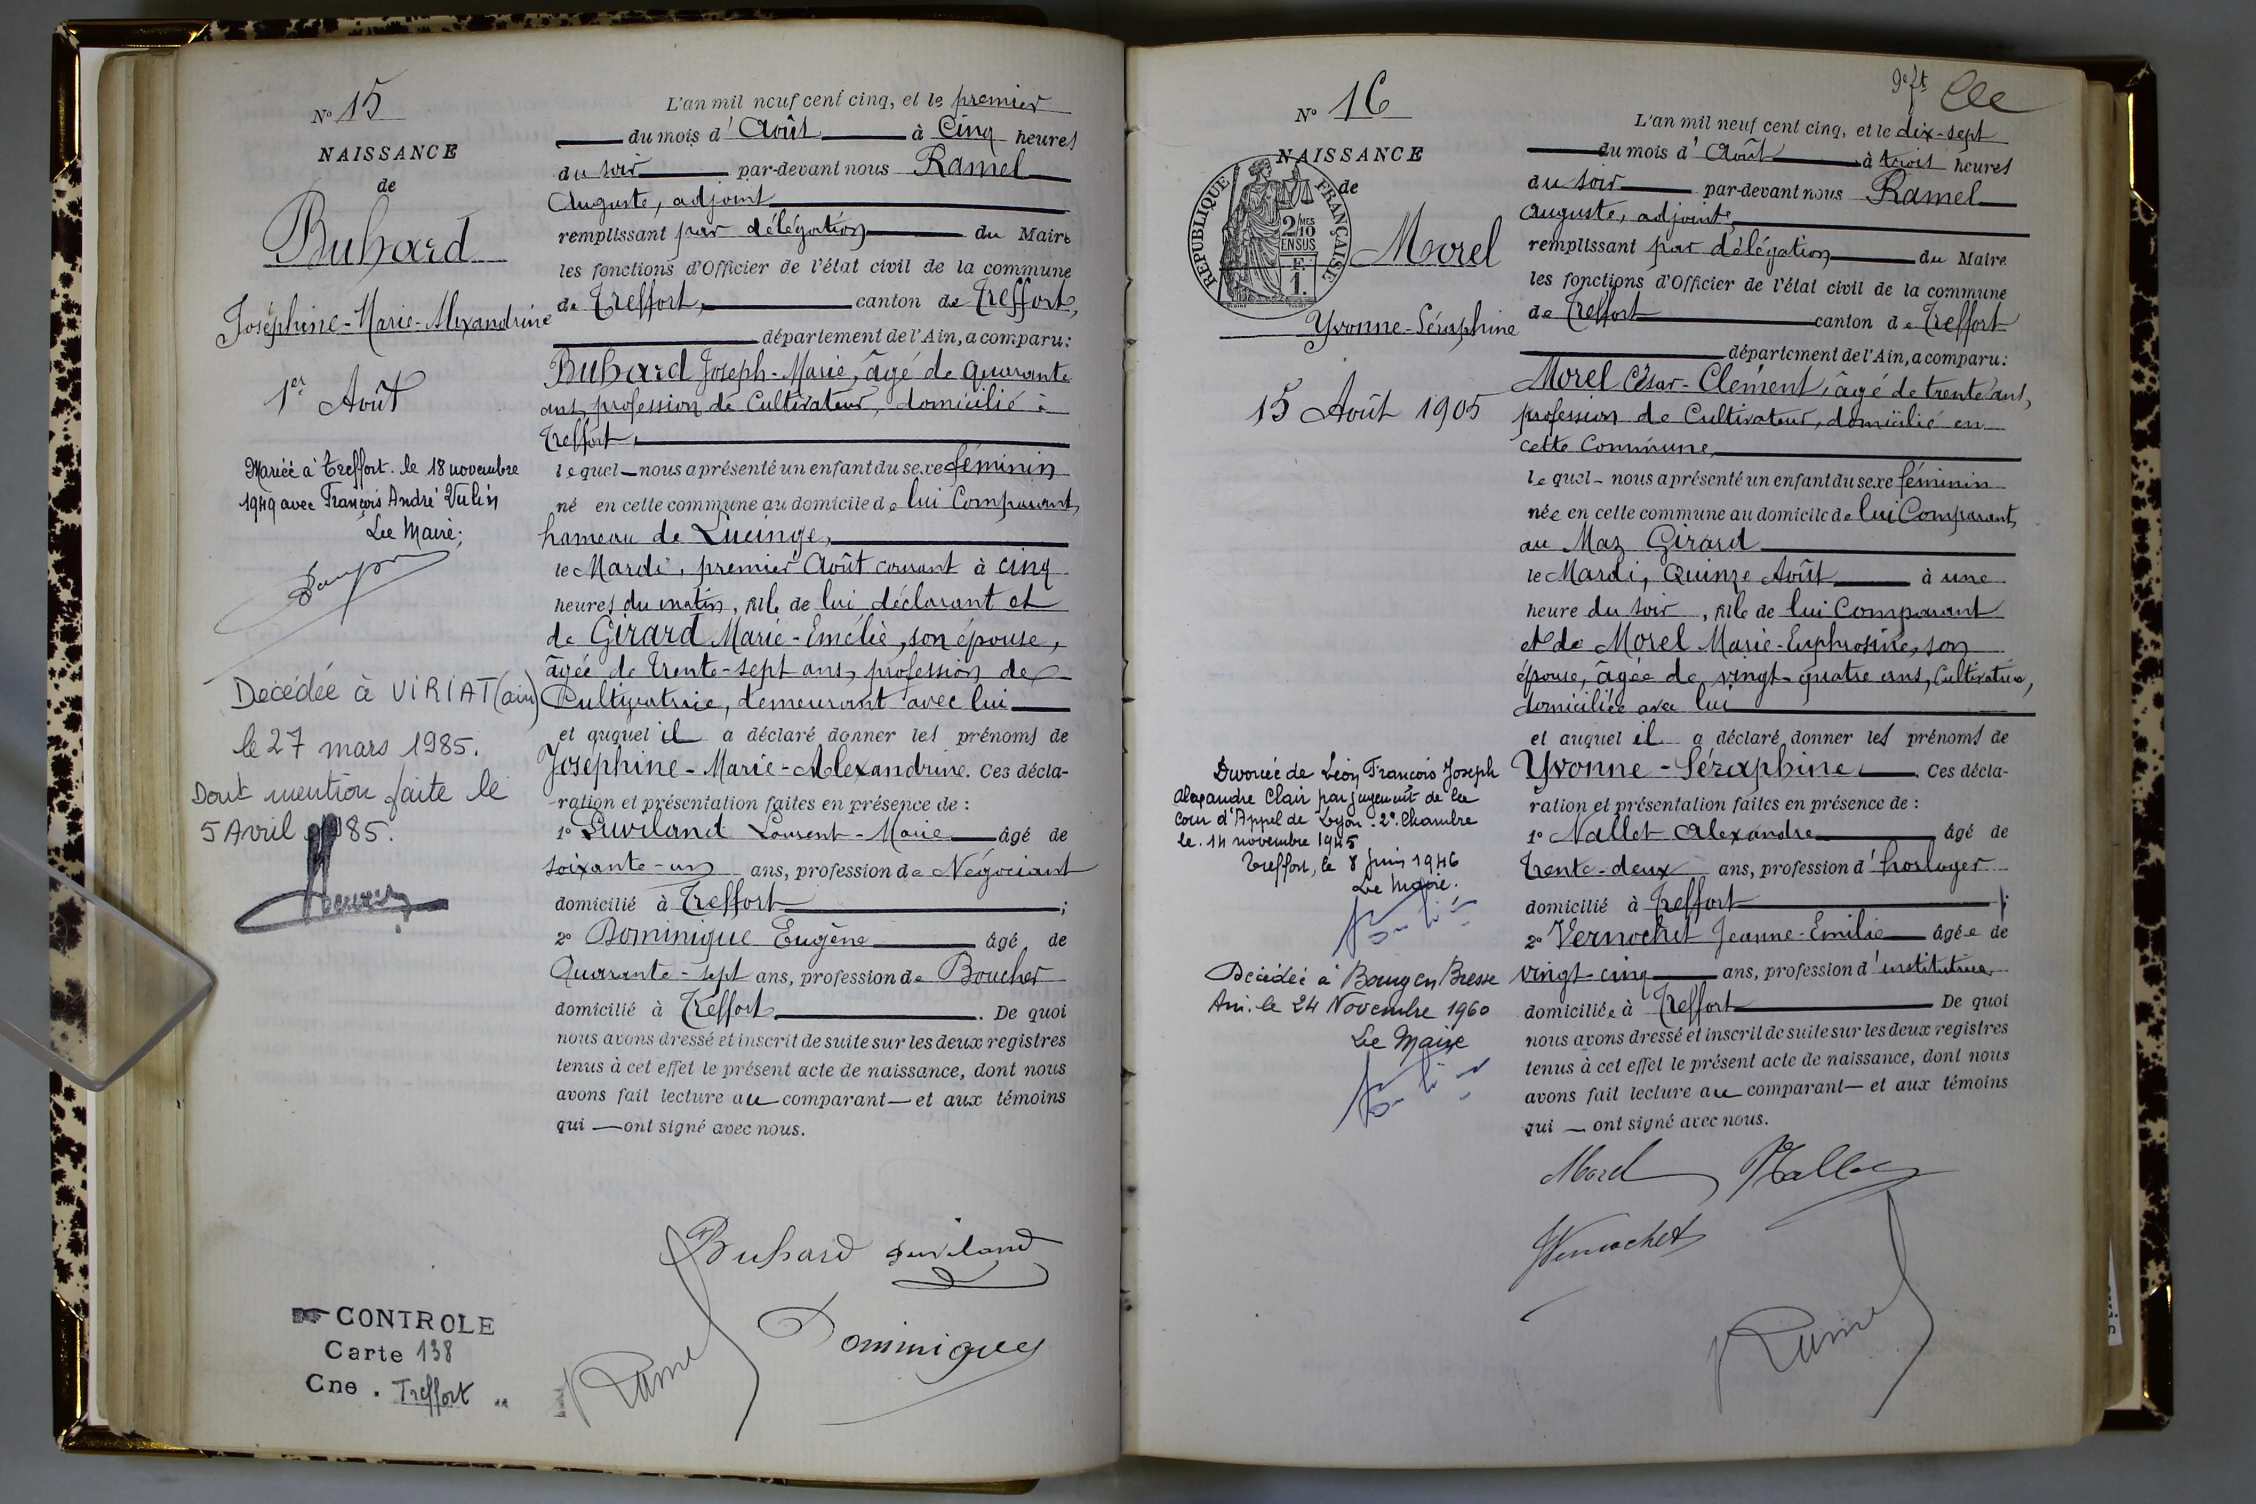 N° 15
NAISSANCE
de
Buhard
Joséphine-Marie-Alexandrine
1er Août
Mariée à Treffort. le 18 novembre
1949 avec François André Vulin
Le Maire;
Décédée à VIRIAT (ain)
le 27 mars 1985.
Dont mention faite le
5 Avril 1985.
CONTROLE
Carte 138
Cne. Treffort
L'an mil neuf cent cinq, et le premier
du mois d'Août à Cinq heures
du soir par-devant nous Ramel
Auguste, adjoint
remplissant par délégation du Maire
les fonctions d'Officier de l'état civil de la commune
de Treffort, canton de Treffort,
département de l'Ain, a comparu:
Buhard Joseph-Marie, âgé de quarante
ans, profession de Cultivateur, domicilié à
Treffort,
lequel nous a présenté un enfant du sexe féminin
né en cette commune au domicile de lui Comparant,
hameau de Lucinge,
le Mardi, premier Août courant à cinq
heures du matin, fille de lui déclarant et
de Girard Marie-Emélie, son épouse,
âgée de trente-sept ans, profession de
Cultivatrice, demeurant avec lui
et auquel il a déclaré donner les prénoms de
Joséphine-Marie-Alexandrine. Ces décla-
ration et présentation faites en présence de:
1° Luviland Laurent-Marie âgé de
soixante-un ans, profession de Négociant
domicilié à Treffort;
2° Dominique Eugène âgé de
Quarante-sept ans, profession de Boucher
domicilié à Treffort. De quoi
nous avons dressé et inscrit de suite sur les deux registres
tenus à cet effet le présent acte de naissance, dont nous
avons fait lecture au comparant et aux témoins
qui ont signé avec nous.
Buhard Luviland
Dominique
Ramel
N° 16
NAISSANCE
de
RÉPUBLIQUE FRANÇAISE
2/10 MES
EN SUS
F.
1.
Morel
Yvonne-Séraphine
15 Août 1905
Divorcée de Léon François Joseph
Alexandre Clair par jugement de la
Cour d'Appel de Lyon. 2e. Chambre
le. 14 novembre 1945
Treffort, le 8 Juin 1946
Le Maire.
Décédée à Bourg en Bresse
Ain. le 24 Novembre 1960
Le Maire
L'an mil neuf cent cinq, et le dix-sept
du mois d'Août à trois heures
du soir par-devant nous Ramel
Auguste, adjoint,
remplissant par délégation du Maire
les fonctions d'Officier de l'état civil de la commune
de Treffort canton de Treffort
département de l'Ain, a comparu:
Morel César-Clément, âgé de trente ans,
profession de Cultivateur, domicilié en
cette Commune,
lequel nous a présenté un enfant du sexe féminin
née en cette commune au domicile de lui Comparant,
au Maz Girard
le Mardi, Quinze Août à une
heure du soir, fille de lui Comparant
et de Morel Marie-Euphrosine, son
épouse, âgée de vingt-quatre ans, Cultivatrice,
domiciliée avec lui
et auquel il a déclaré donner les prénoms de
Yvonne-Séraphine. Ces décla-
ration et présentation faites en présence de:
1° Nallet Alexandre âgé de
Trente-deux ans, profession d'horloger
domicilié à Treffort;
2° Vernochet Jeanne-Emilie âgée de
vingt-cinq ans, profession d'institutrice
domiciliée à Treffort De quoi
nous avons dressé et inscrit de suite sur les deux registres
tenus à cet effet le présent acte de naissance, dont nous
avons fait lecture au comparant et aux témoins
qui ont signé avec nous.
Morel Nallet
Vernochet
Ramel